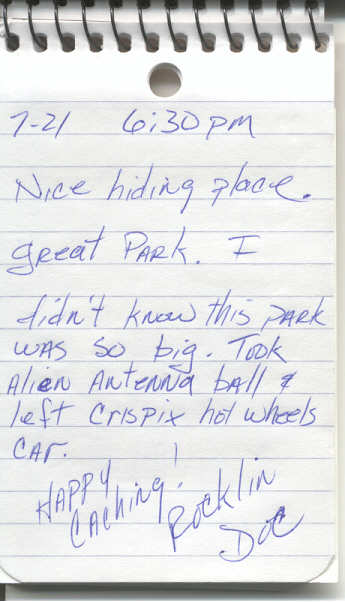 7-21 6:30 pm
Nice hiding place.
great PARK. I
didn't know this PARK
WAS so big. Took
Alien Antenna ball &
left Crispix hot wheels
CAr.
HAPPY
CAching!
Rocklin
Doc